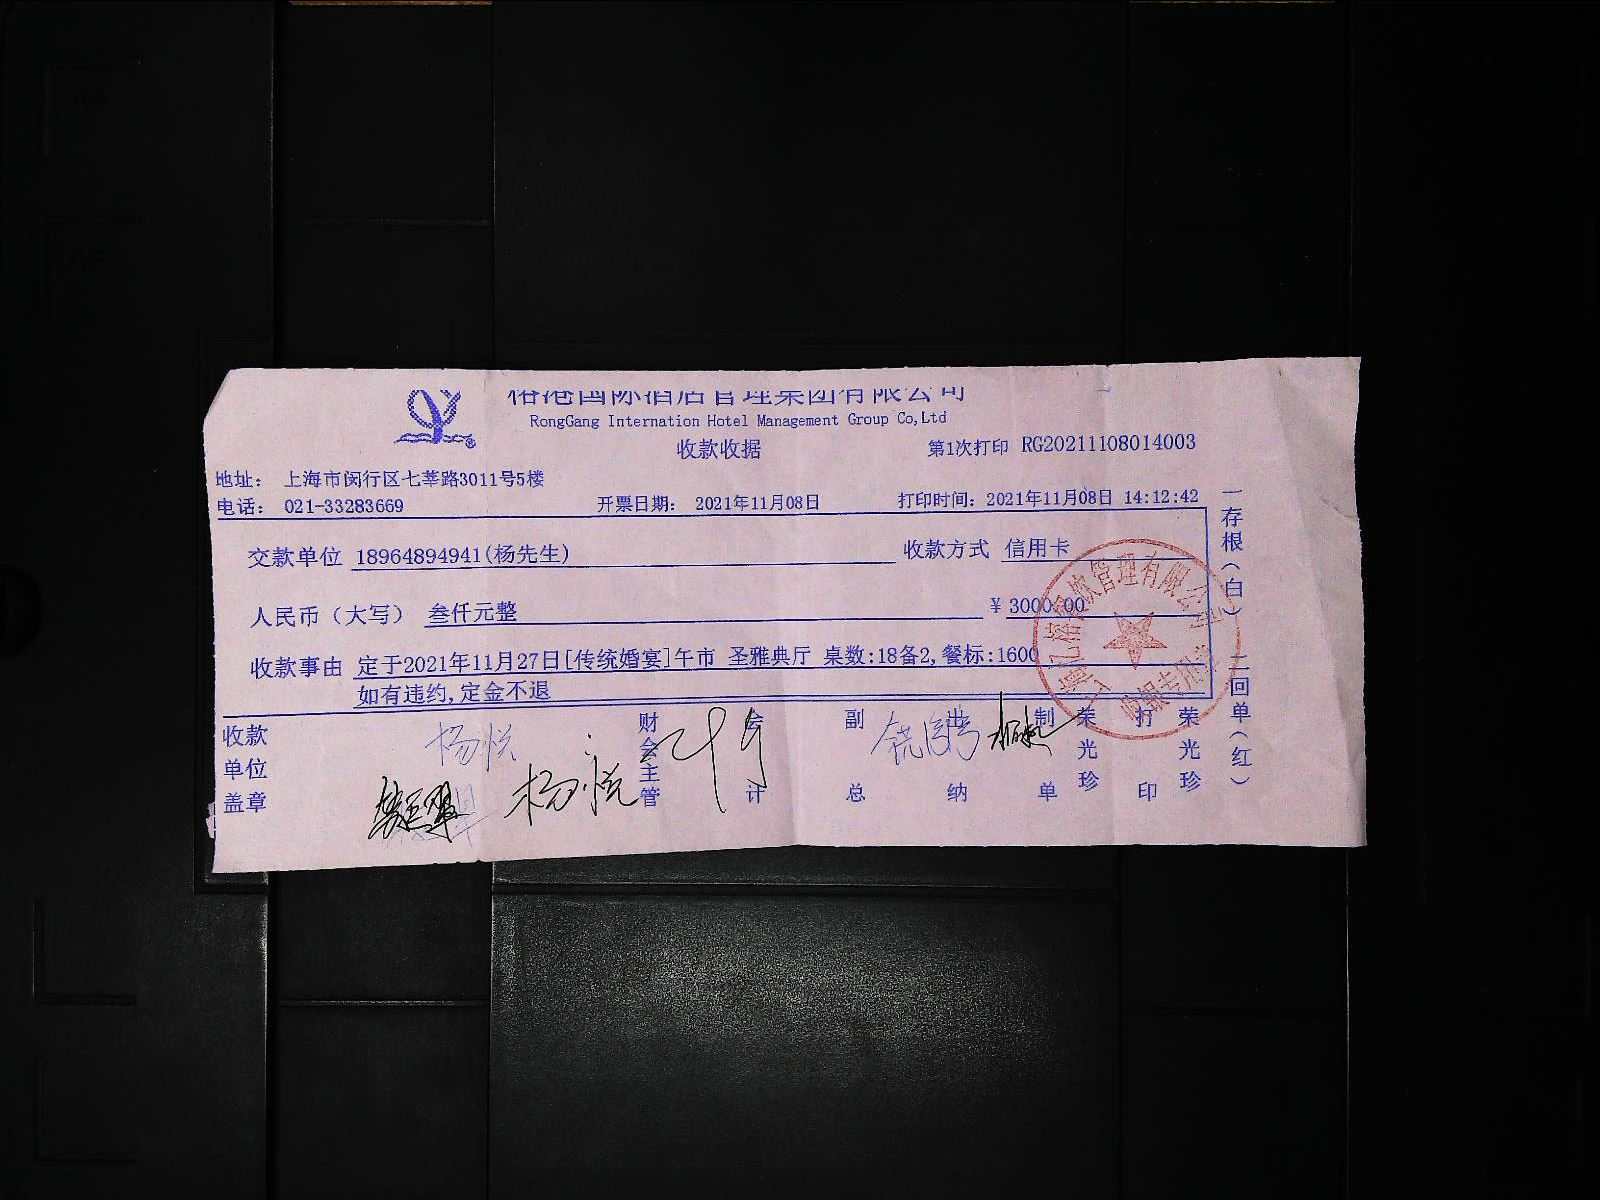 国际酒店管理集团有限公司
RongGang Internation Hotel Management Group Co,Ltd
收款收据
第1次打印 RG20211108014003
地址： 上海市闵行区七莘路3011号5楼
电话： 021-33283669 开票日期： 2021年11月08日 打印时间：2021年11月08日 14:12:42
交款单位 18964894941(杨先生) 收款方式 信用卡
人民币（大写） 叁仟元整 ￥3000.00
收款事由 定于2021年11月27日[传统婚宴]午市 圣雅典厅 桌数:18备2,餐标:1600
如有违约,定金不退
收款单位盖章
杨悦
杨悦
财会主管
会计
副总
出纳
制单
荣光珍
打印
荣光珍
一存根（白） 二回单（红）
餐饮管理有限公司
收银专用章